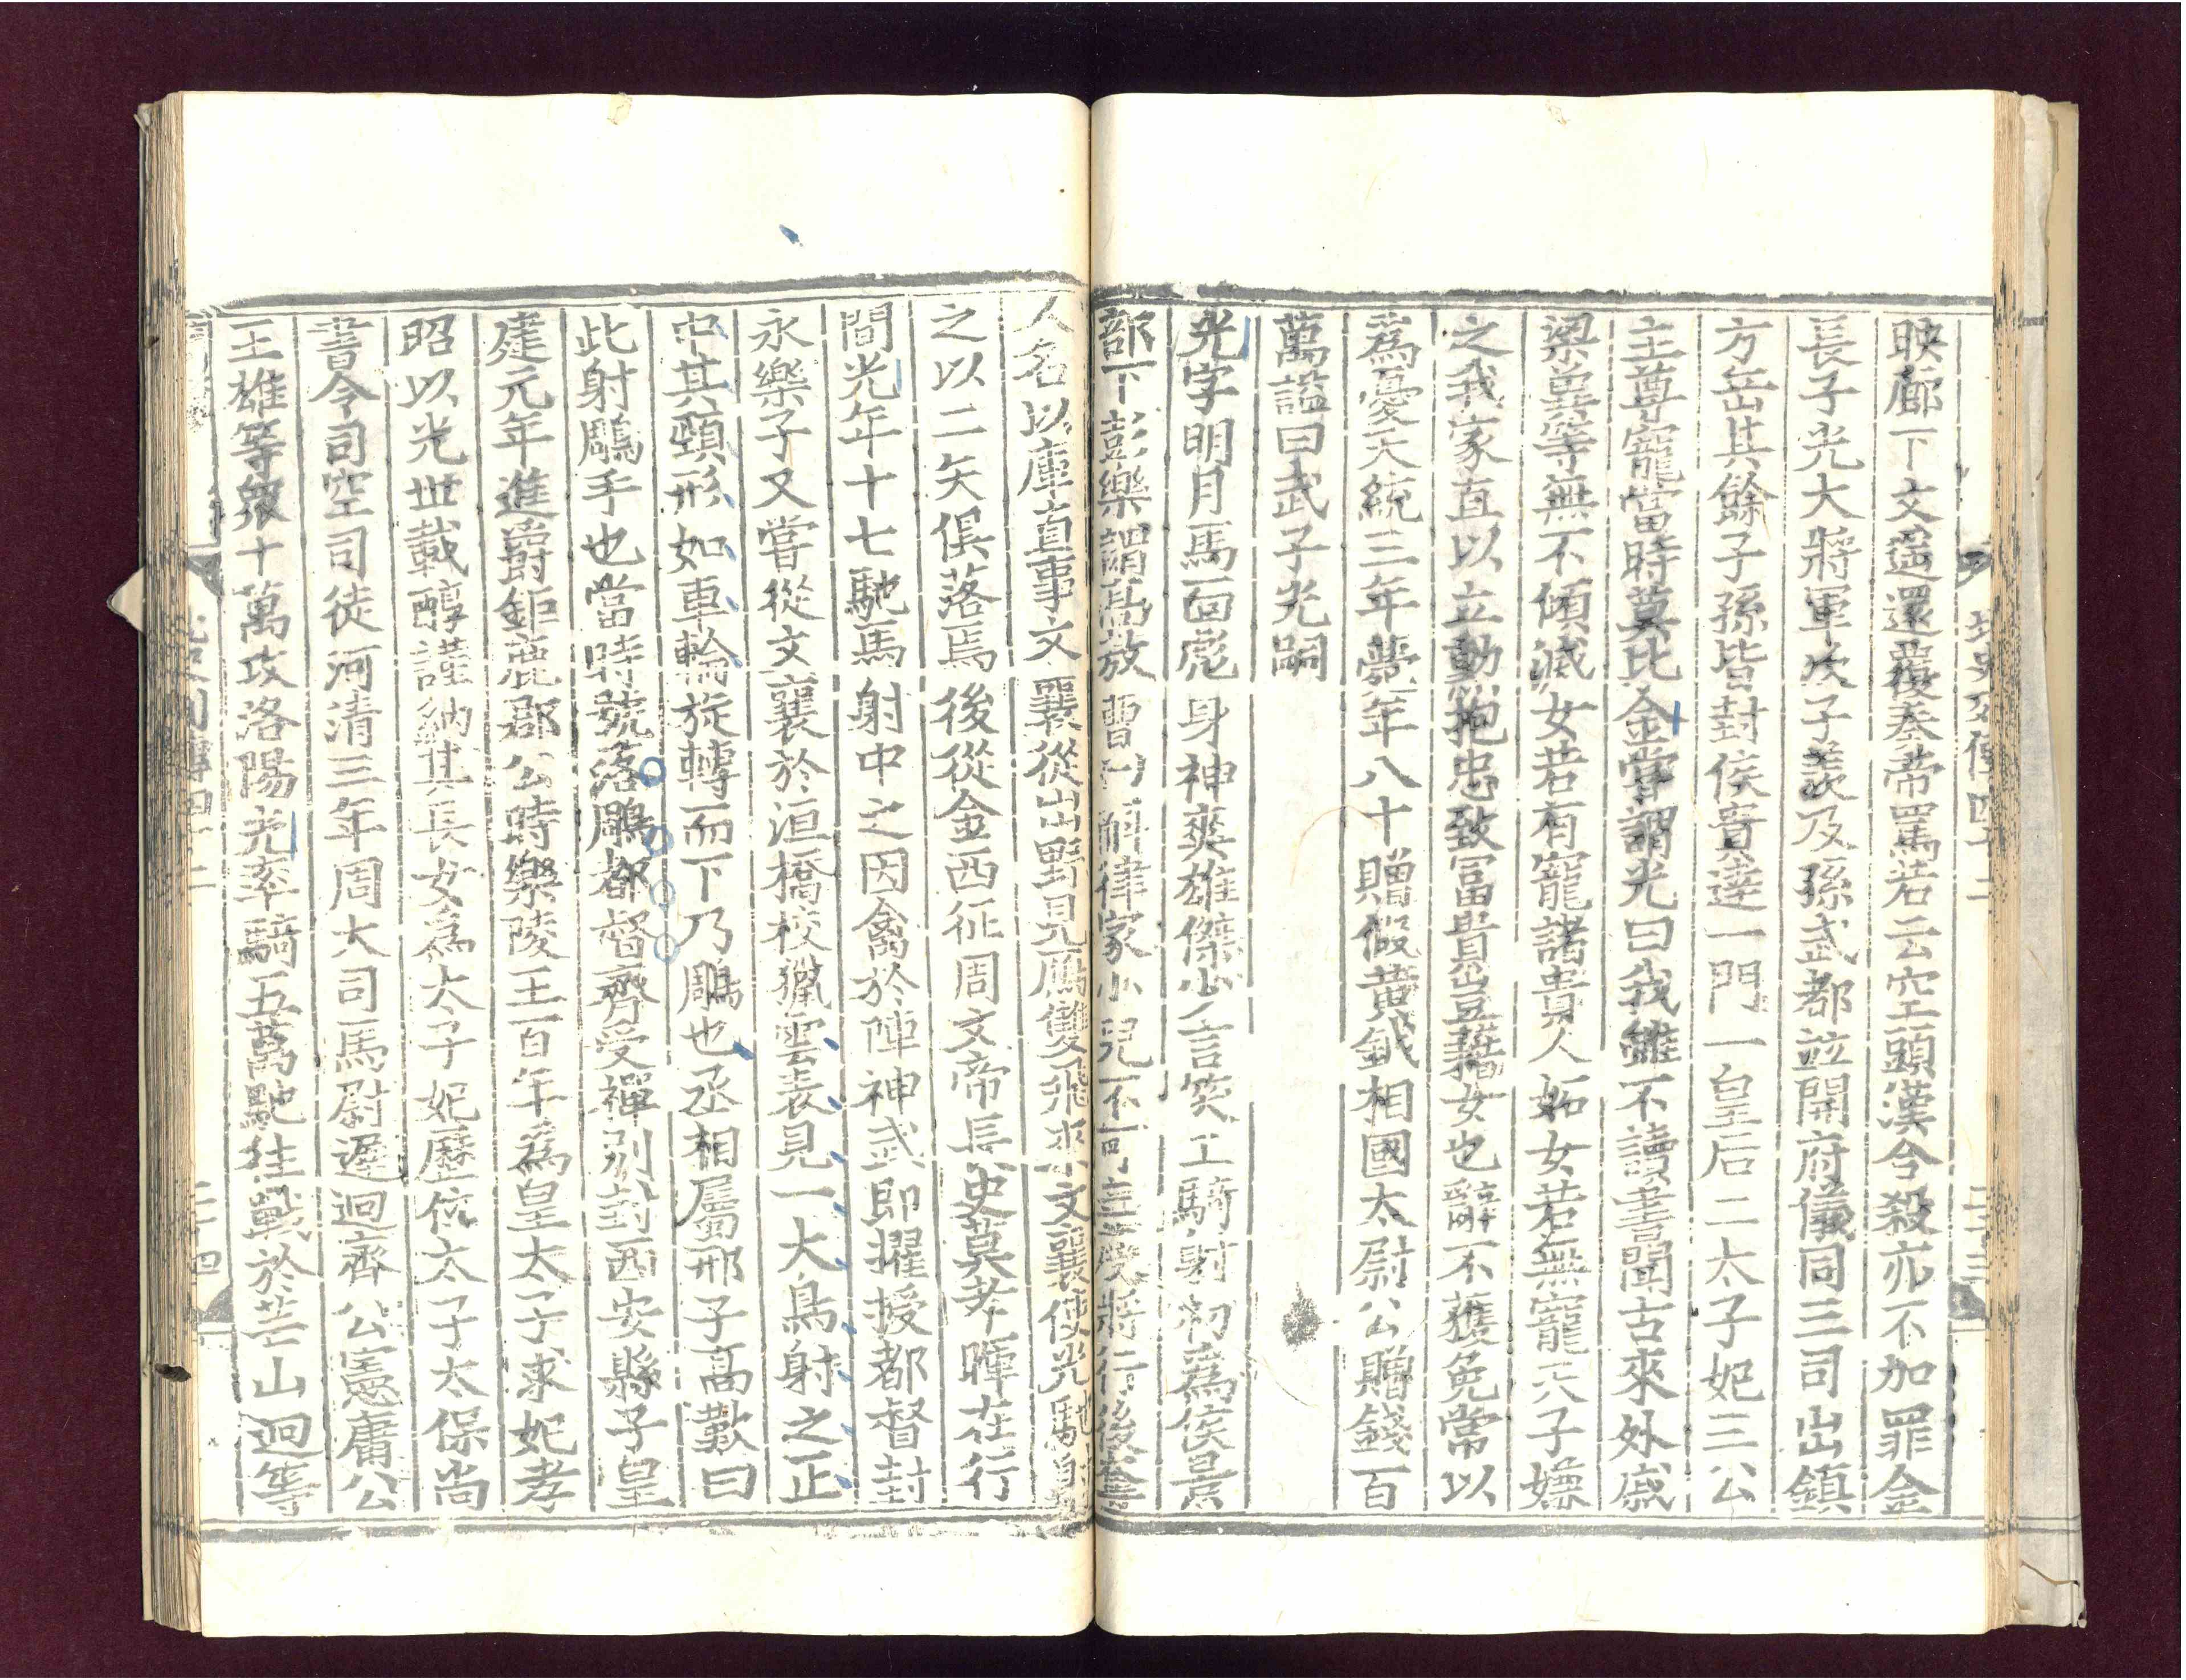 北史列傳四十二
二十三
映廊下文遥還覆奏帝罵若云空頭漢合殺亦不加罪金
長子光大將軍次子羨及孫武都並開府儀同三司出鎮
方岳其餘子孫皆封侯貴達一門一皇后二太子妃三公
主尊寵當時莫比金嘗謂光曰我雖不讀書聞古來外戚
梁冀等無不傾滅女若有寵諸貴人妬女若無寵天子嫌
之我家直以立勳抱忠致富貴豈藉女也辭不獲免常以
為憂天統三年薨年八十贈假黄鉞相國太尉公贈錢百
萬謚曰武子光嗣
光字明月馬面彪身神爽雄傑少言笑工騎射初為侯景
部下彭樂謂高敖曹曰斛律家小兒不可三度將行後奪
人名以庫直事文襄從出野見鴈雙飛來文襄使光馳射
之以二矢俱落焉後從金西征周文帝長史莫孝暉在行
間光年十七馳馬射中之因禽於陣神武即擢授都督封
永樂子又嘗從文襄於洹橋校獵雲表見一大鳥射之正
中其頸形如車輪旋轉而下乃鵰也丞相屬邢子高歎曰
此射鵰手也當時號落鵰都督齊受禪别封西安縣子皇
建元年進爵鉅鹿郡公時樂陵王百年為皇太子求妃孝
昭以光世載醇謹納其長女為太子妃歷位太子太保尚
書令司空司徒河清三年周大司馬尉遲迥齊公憲庸公
王雄等衆十萬攻洛陽光率騎五萬馳往戰於芒山迥等
北史列傳四十二
二十四